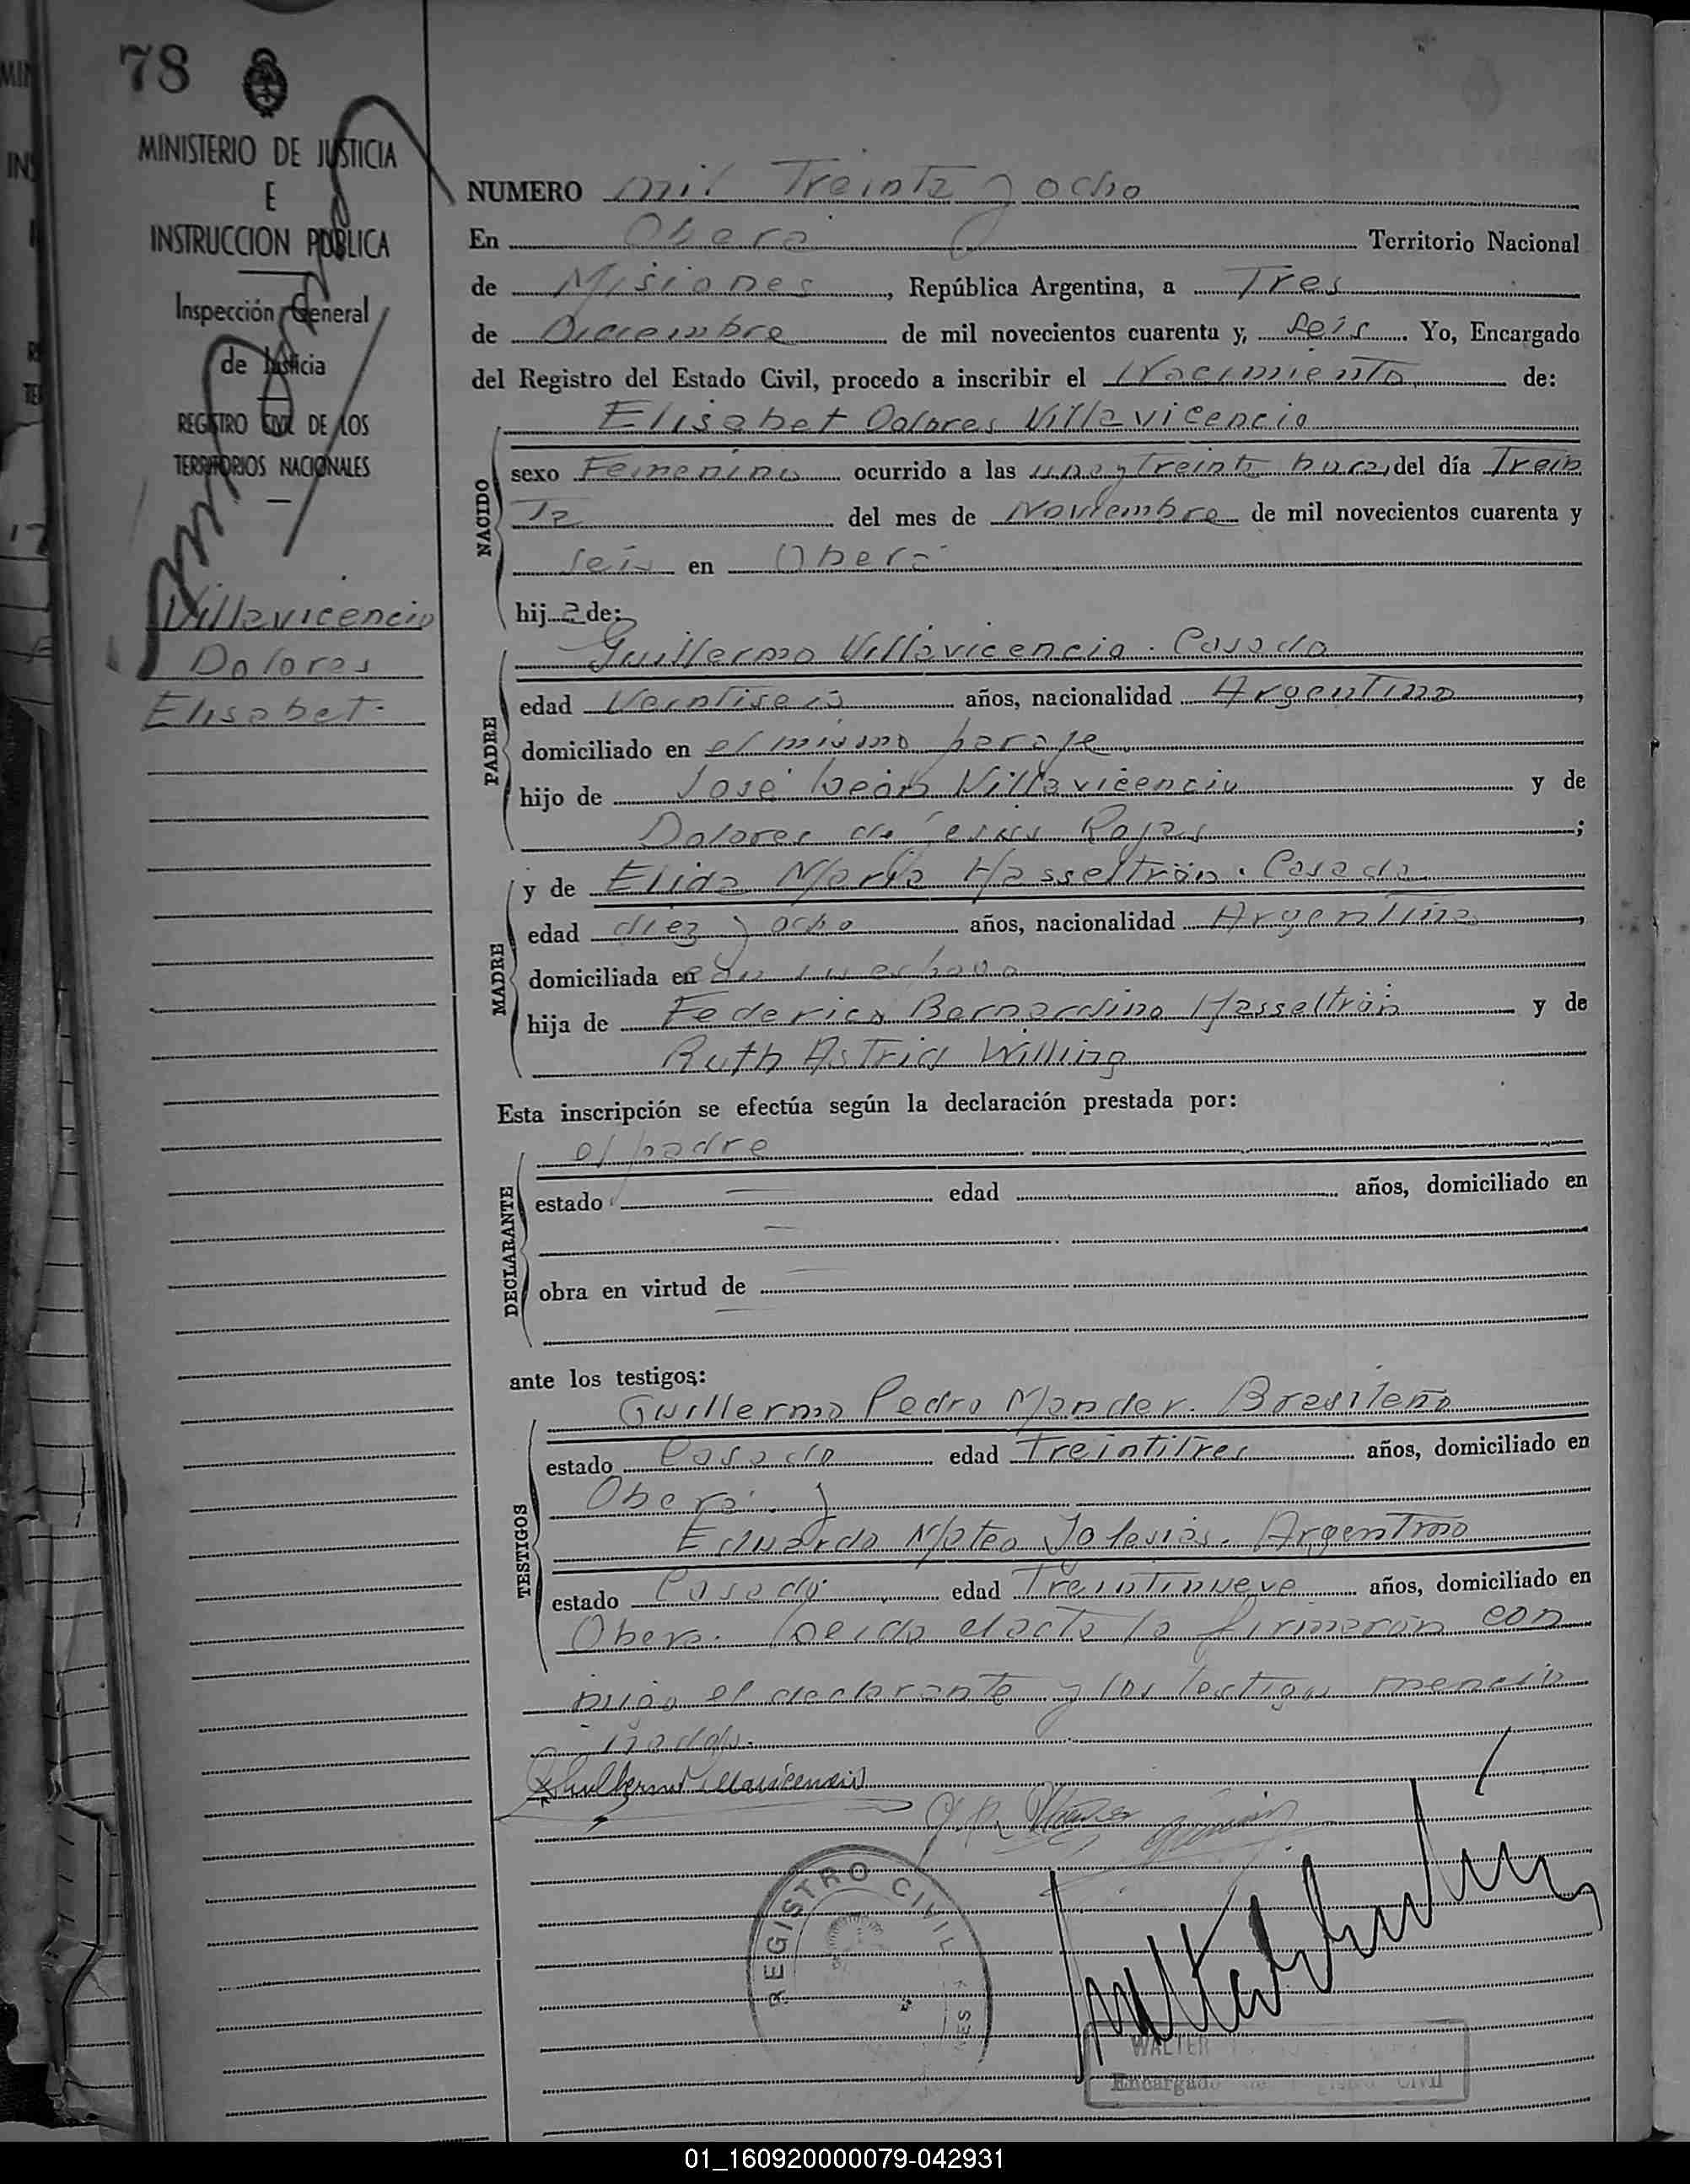 78
MINISTERIO DE JUSTICIA
E
INSTRUCCION PUBLICA
Inspección General
de Justicia
REGISTRO CIVIL DE LOS
TERRITORIOS NACIONALES
Villavicencio
Dolores
Elisabet
NUMERO mil Treinta y ocho
En Oberá Territorio Nacional
de Misiones, República Argentina, a Tres
de Diciembre de mil novecientos cuarenta y, seis. Yo, Encargado
del Registro del Estado Civil, procedo a inscribir el Nacimiento de:
Elisabet Dolores Villavicencio
NACIDO
sexo Femenino ocurrido a las una y treinta hora, del día Trein
ta del mes de Noviembre de mil novecientos cuarenta y
seis en Oberá
hij a de:
PADRE
Guillermo Villavicencio. Casado
edad Veintiseis años, nacionalidad Argentino,
domiciliado en el mismo paraje
hijo de José León Villavicencio y de
Dolores de Jesus Rojas;
MADRE
y de Elida María Hasseltrön. Casada
edad diez y ocho años, nacionalidad Argentina,
domiciliada en con su esposo
hija de Federico Bernardino Hasseltrön y de
Ruth Astrid Willing
Esta inscripción se efectúa según la declaración prestada por:
DECLARANTE
el padre
estado edad años, domiciliado en
obra en virtud de
ante los testigos:
TESTIGOS
Guillermo Pedro Mander. Brasileño
estado Casado edad Treintitres años, domiciliado en
Oberá y
Eduardo Mateo Iglesias. Argentino
estado Casado edad Treintinueve años, domiciliado en
Oberá. Leida el acta la firmaron con
migo el declarante y los testigos mencio
nados.
Guillermo Villavicencio
REGISTRO CIVIL
WALTER
Encargado Civil
01_160920000079-042931